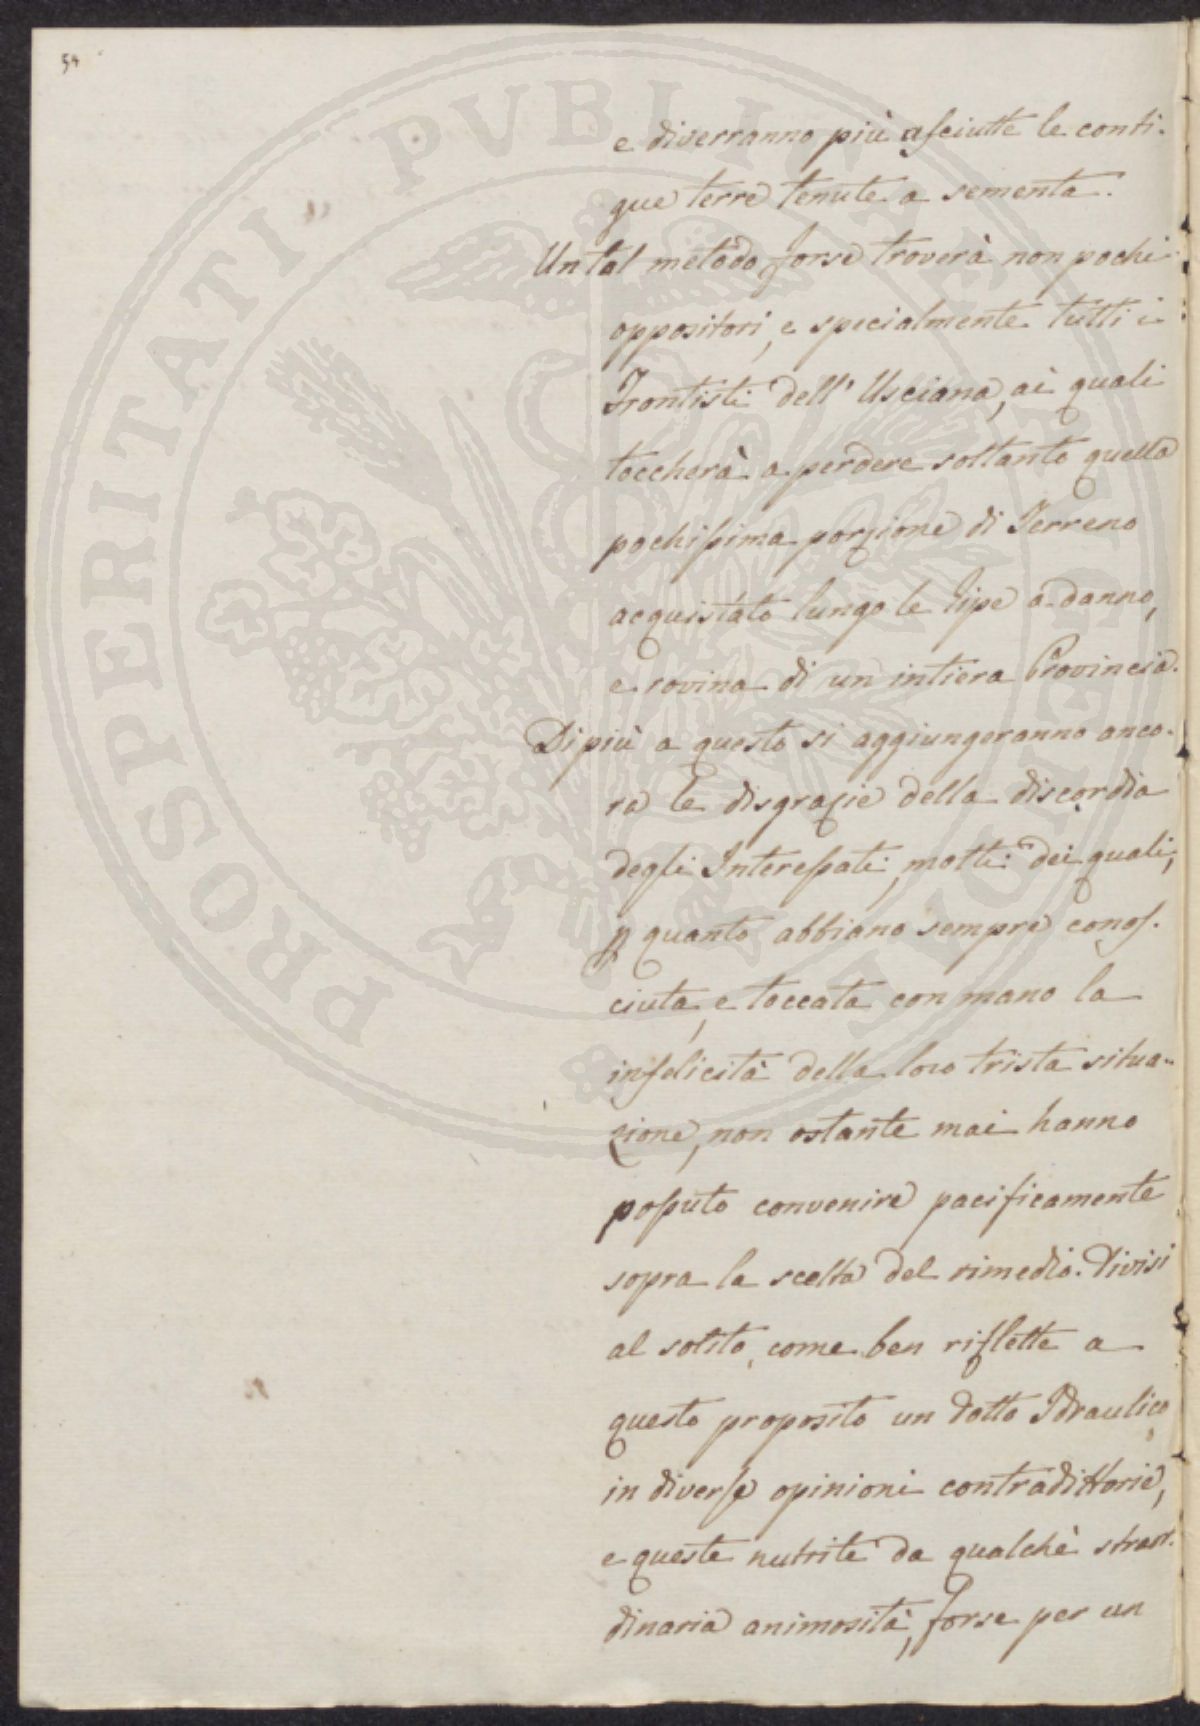 54
e diverranno più asciutte le conti-
gue terre tenute a sementa.
Un tal metodo forse troverà non pochi
oppositori, e specialmente tutti i
Frontisti dell' Usciana, ai quali
toccherà a perdere soltanto quella
pochissima porzione di Terreno
acquistato lungo le ripe a danno,
e rovina di un intiera Provincia.
Di più a questo si aggiungeranno anco-
ra le disgrazie della discordia
degli Interessati, molti dei quali,
p quanto abbiano sempre conos-
ciuta, e toccata con mano la
infelicità della loro trista situa-
zione, non ostante mai hanno
possuto convenire pacificamente
sopra la scelta del rimedio. Divisi
al solito, come ben riflette a
questo proposito un dotto Idraulico,
in diverse opinioni contradittorie,
e queste nutrite da qualchè straor-
dinaria animosità, forse per un
PROSPERITATI PVBLICAE AVGENDAE